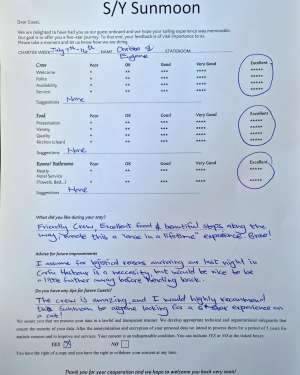 S/Y Sunmoon
Dear Guest,
We are delighted to have had you as our guest onboard and we hope your sailing experience was memorable.
Our goal is to offer you a five-star journey. To that end, your feedback is of vital importance to us.
Please take a moment and let us know how we are doing.
CHARTER WEEK July 7th - 14th NAME STATEROOM
England
Crew Poor OK Good Very Good Excellent
Welcome * ** *** **** *****
Polite * ** *** **** *****
Availability * ** *** **** *****
Service * ** *** **** *****
Suggestions None
Food Poor OK Good Very Good Excellent
Presentation * ** *** **** *****
Variety * ** *** **** *****
Quality * ** *** **** *****
Kitchen (clean) * ** *** **** *****
Suggestions None
Rooms/ Bathrooms Poor OK Good Very Good Excellent
Neatly * ** *** **** *****
Hotel Service * ** *** **** *****
(Towels, Bed...)
Suggestions None
What did you like during your stay?
Friendly Crew, Excellent food & beautiful stops along the
way made this a "once in a lifetime" experience.
Advice for future improvements
I assume for logistical reasons anchoring our last night in
Corfu Harbour is a necessity but would be nice to be
a little further away before heading back.
Do you have any tips for future Guests?
The crew is amazing and I would highly recommend
this Sunmoon to anyone looking for a experience on
a cat!
We assure you that we process your data in a lawful and transparent manner. We develop appropriate technical and organizational safeguards that
ensure the security of your data. After the anonymization and encryption of your personal data we intend to process them for a period of 5 years for
statistic reasons and to improve our services. Your consent is an indispensable condition. You can indicate YES or NO in the ticked boxes:
YES NO
You have the right of a copy and you have the right to withdraw your consent at any time.
Thank you for your cooperation and we hope to welcome you back very soon!